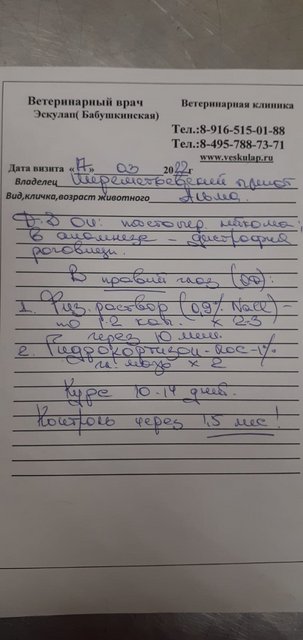 Ветеринарный врач
Эскулап( Бабушкинская)
Ветеринарная клиника
Тел.:8-916-515-01-88
Тел.:8-495-788-73-71
www.veskulap.ru
Дата визита «17» 03 2022г
Владелец Шереметьевский приют
Вид,кличка,возраст животного Альма.
D-S OU:
в анамнезе - дистрофия
роговицы.
В правый глаз (OD):
1. Физ. раствор (0,9% NaCl) -
по 1-2 кап. x 2-3
через 10 мин.
2. Гидрокортизон-Пос-1%
гл. мазь x 2
Курс 10-14 дней.
Контроль через 1,5 мес!